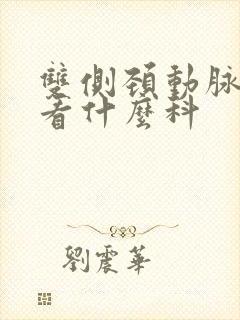 雙側頸動脉
看什麼科
劉震華